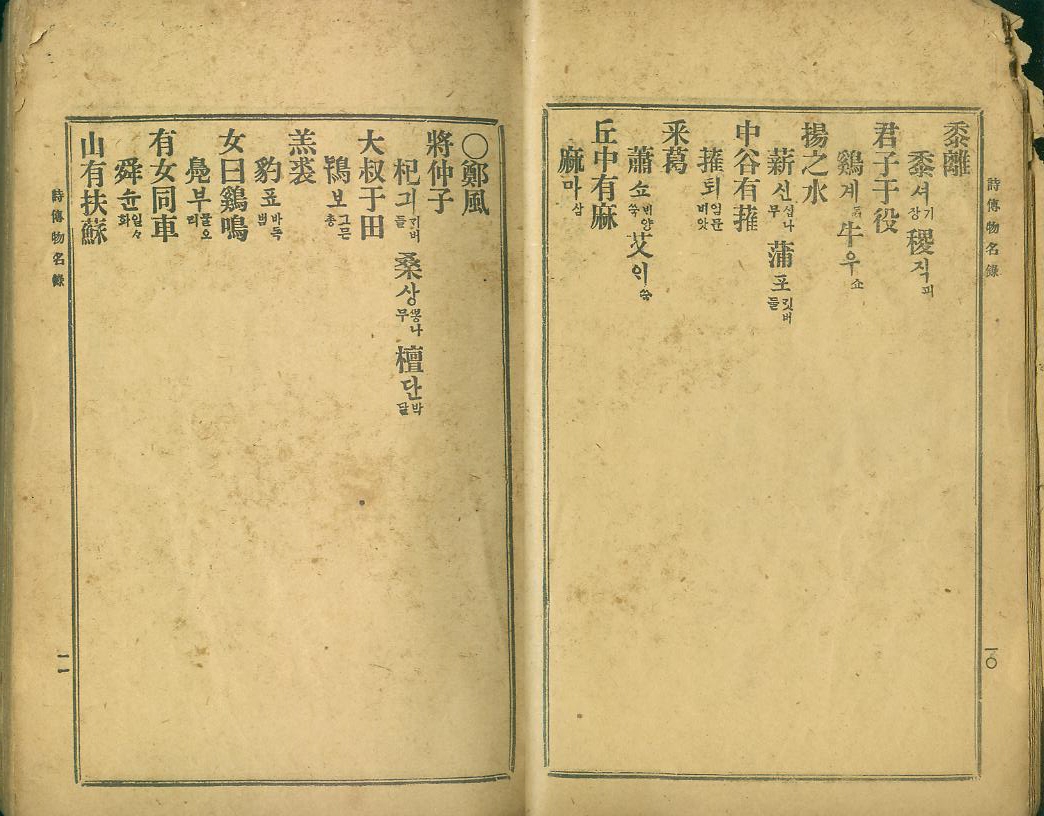 詩傳物名錄
一〇
黍離
黍셔기장 稷직피
君子于役
鷄계 닭 牛우쇼
揚之水
薪신섭나무 蒲포깃버들
中谷有蓷
蓷퇴암눈비앗
釆葛
蕭쇼 쑥 艾애쑥
丘中有麻
麻마삼
〇鄭風
將仲子
杞긔깃버들 桑상뽕나무 檀단박달
大叔于田
鴇보 총
羔裘
豹표바독범
女曰鷄鳴
鳧부물오리
有女同車
舜슌일々화
山有扶蘇
詩傳物名錄
一一